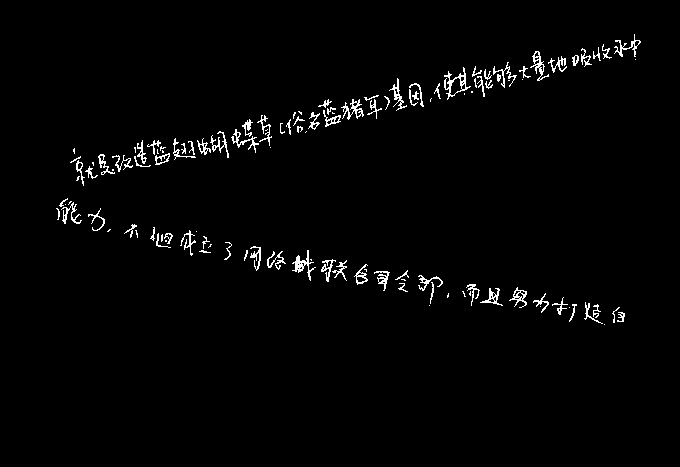 就是改造蓝翅蝴蝶草(俗名蓝猪耳)基因,使其能够大量地吸收水中
能力,不但成立了网络战联合司令部,而且努力打造自